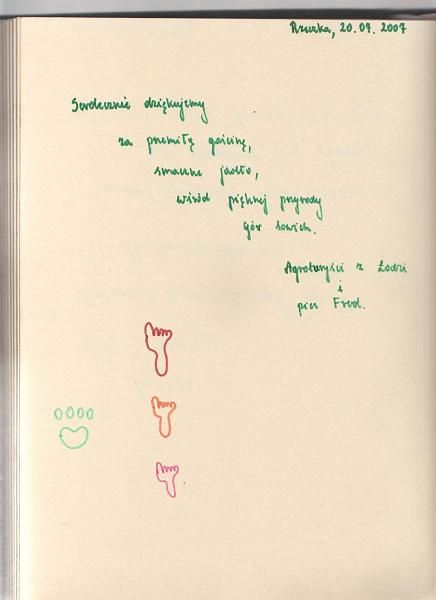 Rzeczka, 20.07.2007
Serdecznie dziękujemy
za przemiłą gościnę,
smaczne jadło,
wśród pięknej przyrody
gór sowich.
Agroturyści z Łodzi
i
pies Fred.